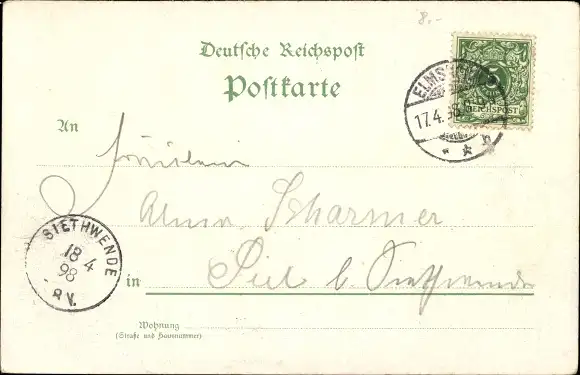 8.-
Deutsche Reichspost
Postkarte
5 5
REICHSPOST
ELMSH
17.4.98
An
Fräulein
Alma Scharmer
in Siel b. Siethwende
SIETHWENDE
18 4
98
8 V.
Wohnung
(Straße und Hausnummer)